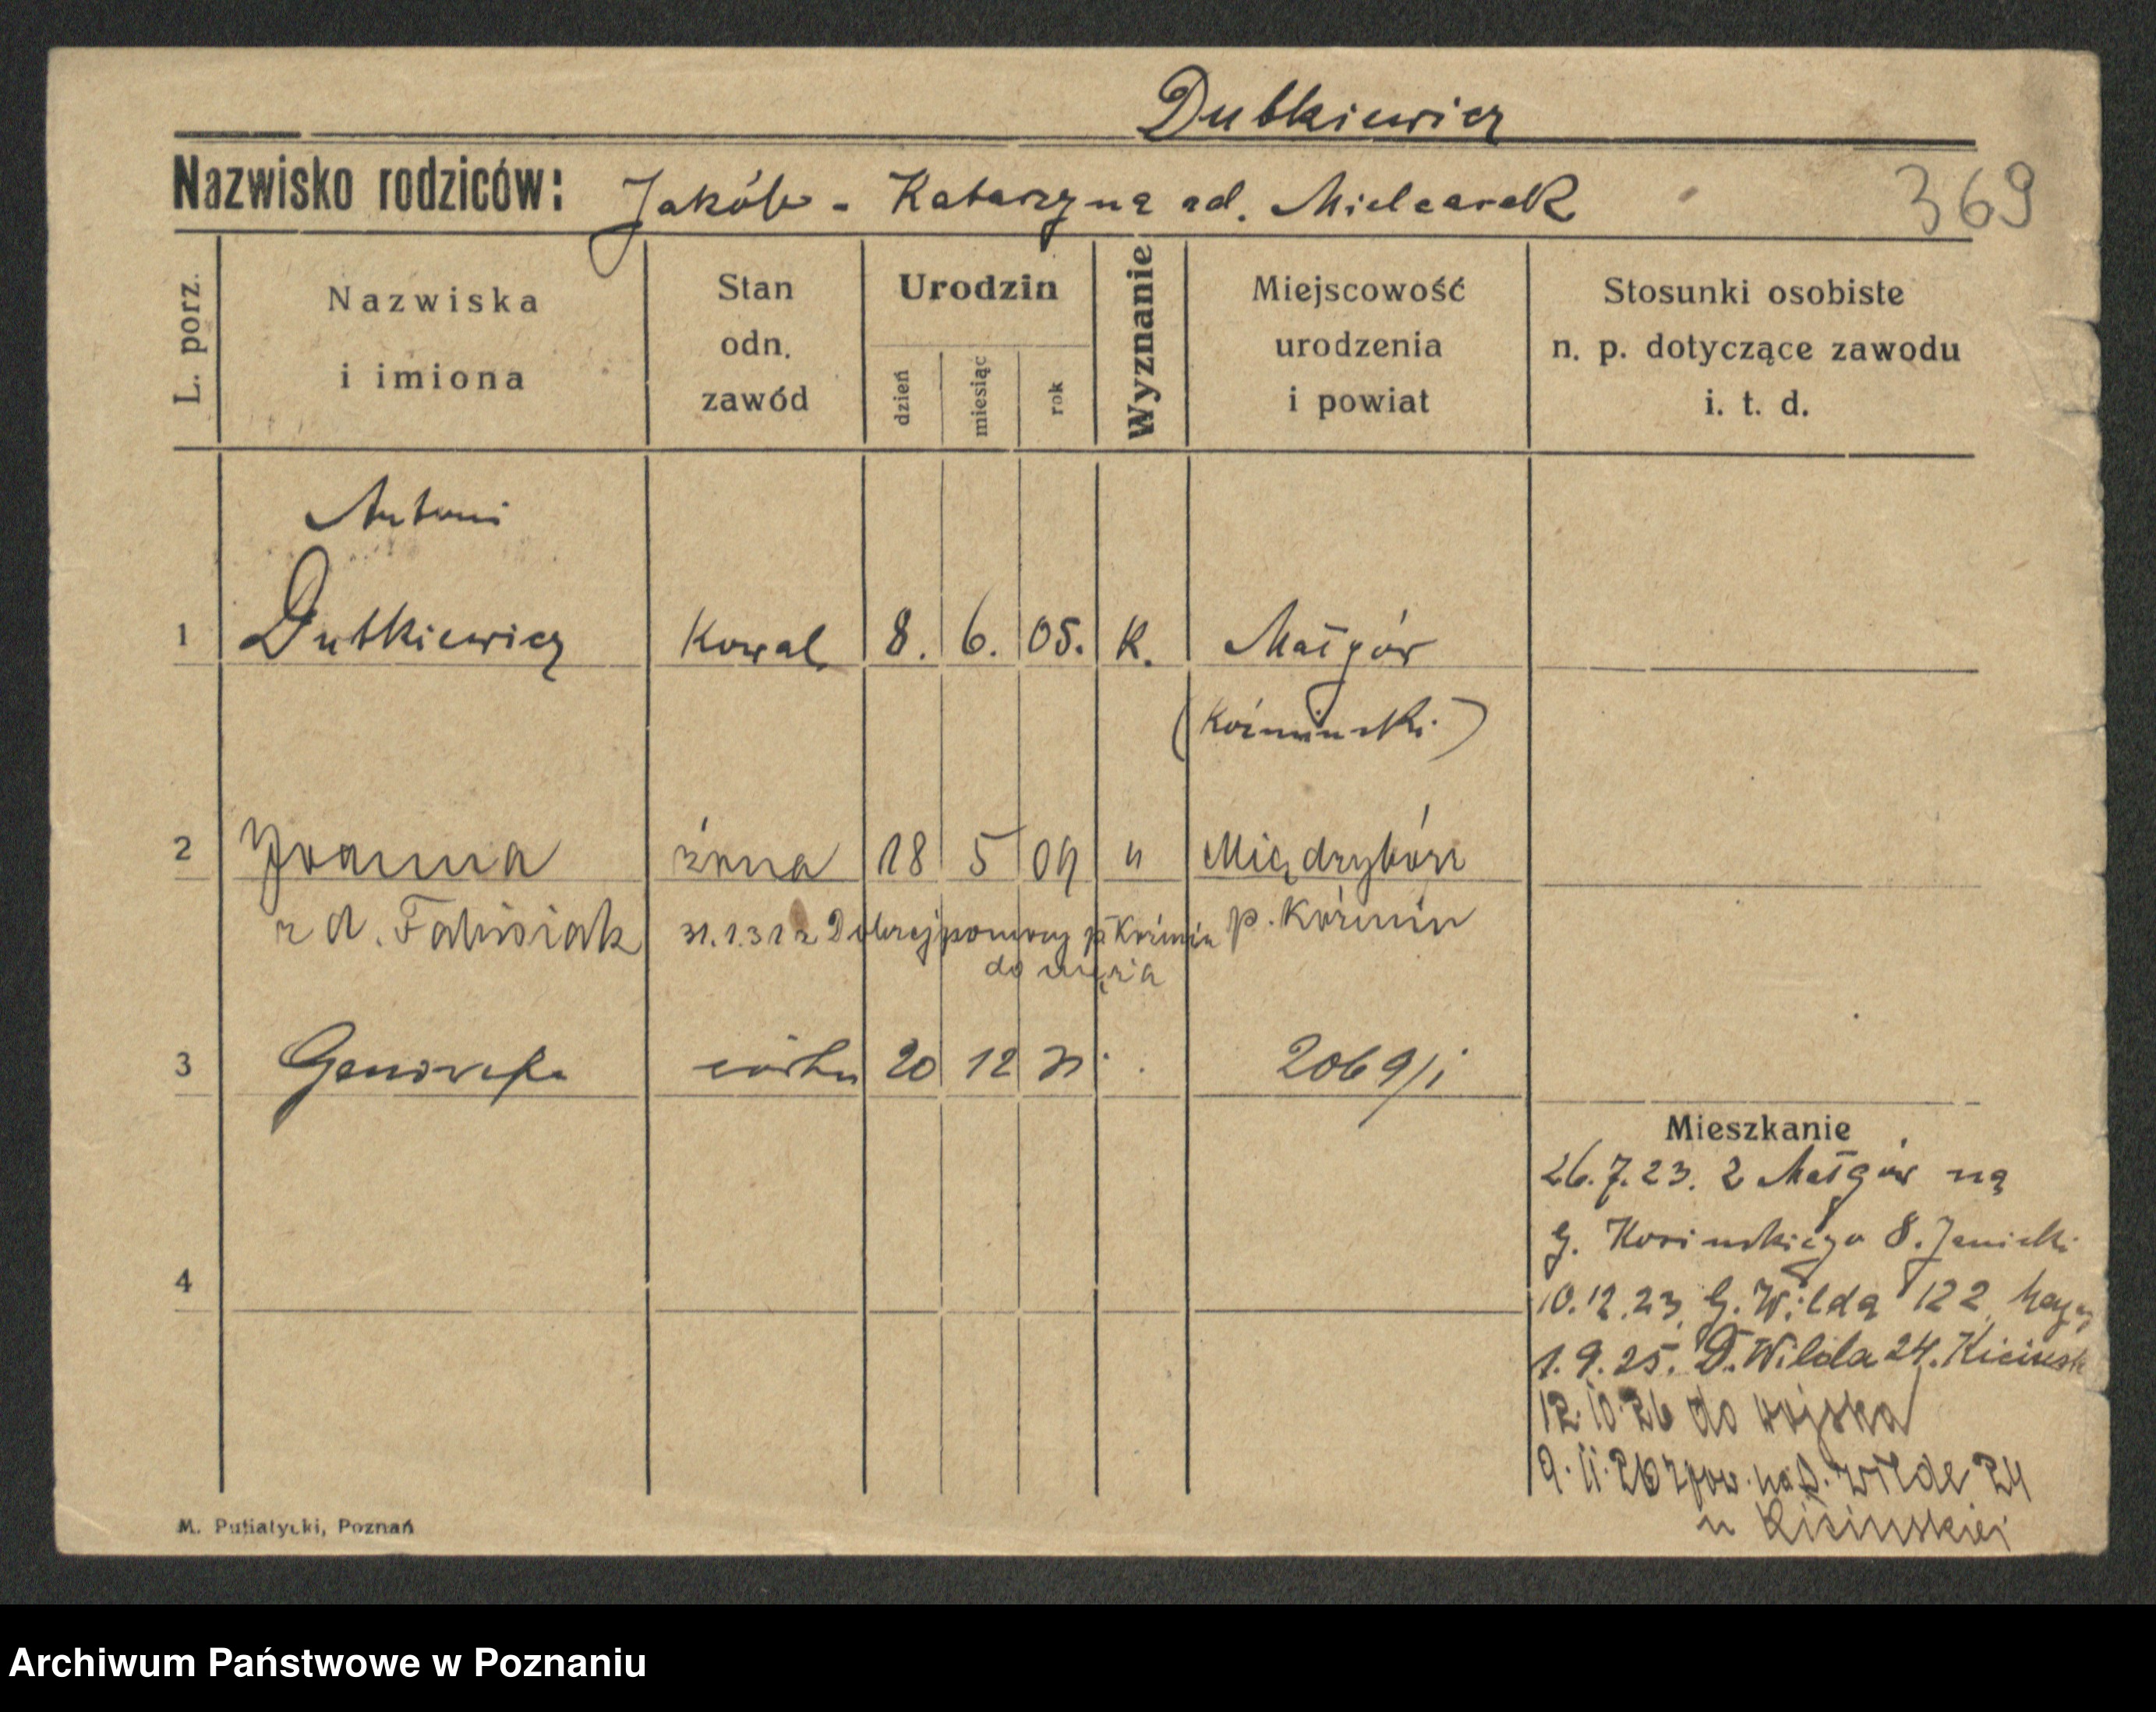 Dutkiewicz
Nazwisko rodziców: Jakób - Katarzyna zd. Mielcarek
369
L. porz.
Nazwiska i imiona
Stan odn. zawód
Urodzin
dzień miesiąc rok
Wyznanie
Miejscowość urodzenia i powiat
Stosunki osobiste n. p. dotyczące zawodu i. t. d.
Antoni
1 Dutkiewicz Kowal 8. 6. 05. K. Małgów
(Koźmiński)
2 Joanna żona 18 5 09 " Międzybórz
z d. Fabisiak 31.1.31 z Dobrzej pomocy p Koźmin p. Koźmin
do męża
3 Genowefa córka 20 12 31 . 2069/i
Mieszkanie
26.7.23. z Małgów na
G. 8. Janicki
4
10.12.23. G. Wilda 122
1.9.25. D. Wilda 24. Kicińsk
12.10.26 do wojska
9.11.26 zpow. na D. Wilde 24
u Kicińskiej
M. Putiatycki, Poznań
Archiwum Państwowe w Poznaniu